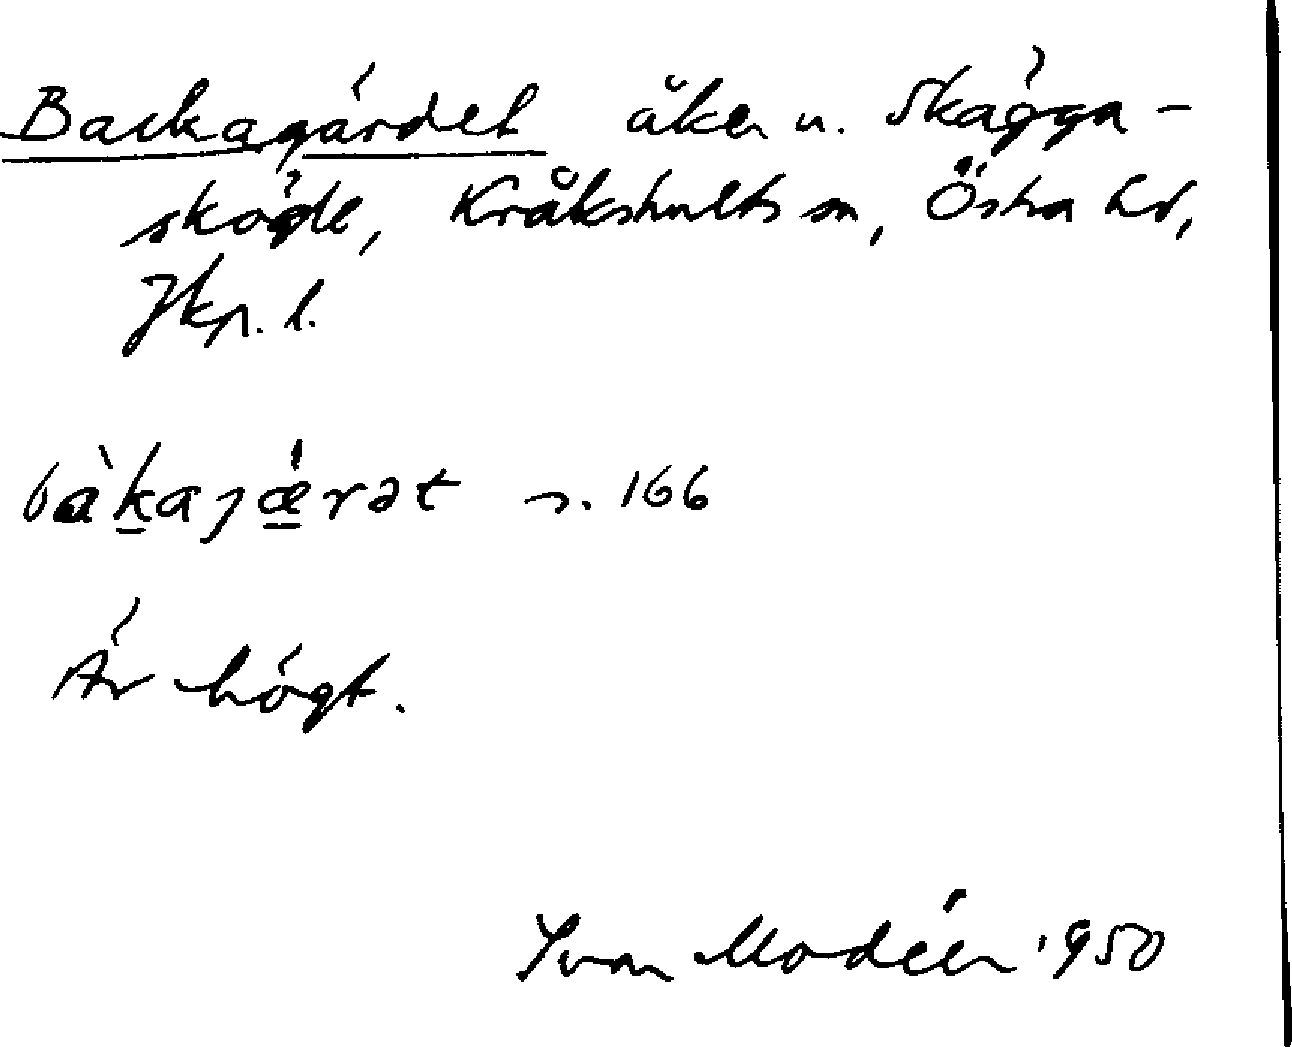 Backagärdet åker u. Skägga-
sköle, Kråkshults sn, Östra hd,
Jkp. l.
bàkajæ̀rət s. 166
Är högt.
Ivan Modéer 1950